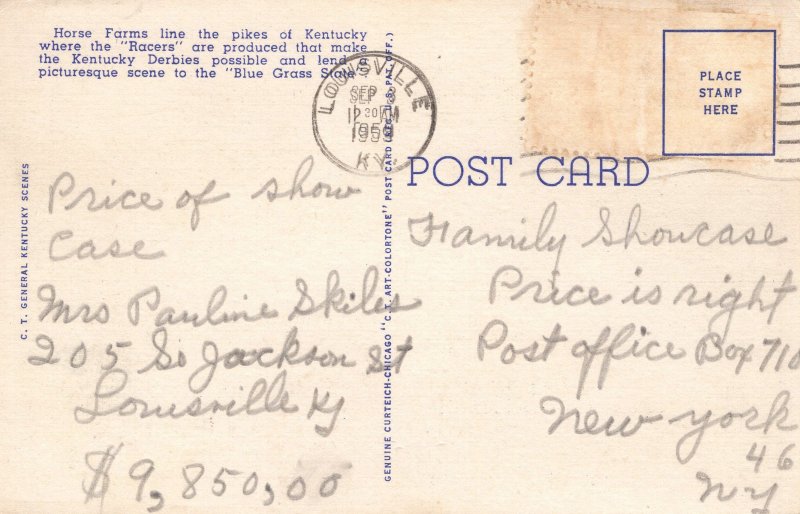 Horse Farms line the pikes of Kentucky
where the "Racers" are produced that make
the Kentucky Derbies possible and lend a
picturesque scene to the "Blue Grass State."
LOUISVILLE
SEP 3
12 30 AM
1959
KY.
PLACE
STAMP
HERE
POST CARD
C. T. GENERAL KENTUCKY SCENES
Price of show
Case
Mrs Pauline Skiles
205 So Jackson St
Louisville Ky
$9,850,00
GENUINE CURTEICH-CHICAGO "C. T. ART-COLORTONE" POST CARD (REG. U.S. PAT. OFF.)
Family Showcase
Price is right
Post office Box 710
New York
46
NY